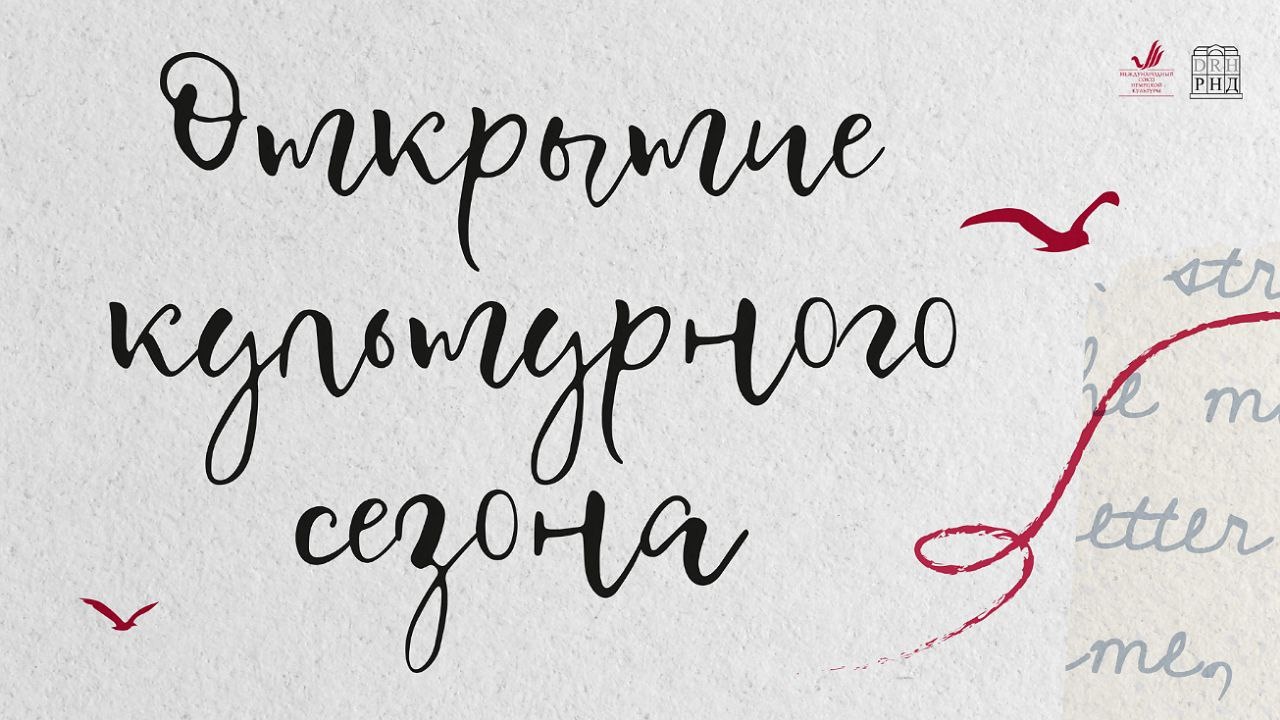 Открытие
культурного
сезона
МЕЖДУНАРОДНЫЙ
СОЮЗ
НЕМЕЦКОЙ
КУЛЬТУРЫ
DRH
РНД
str
he m
etter
me,